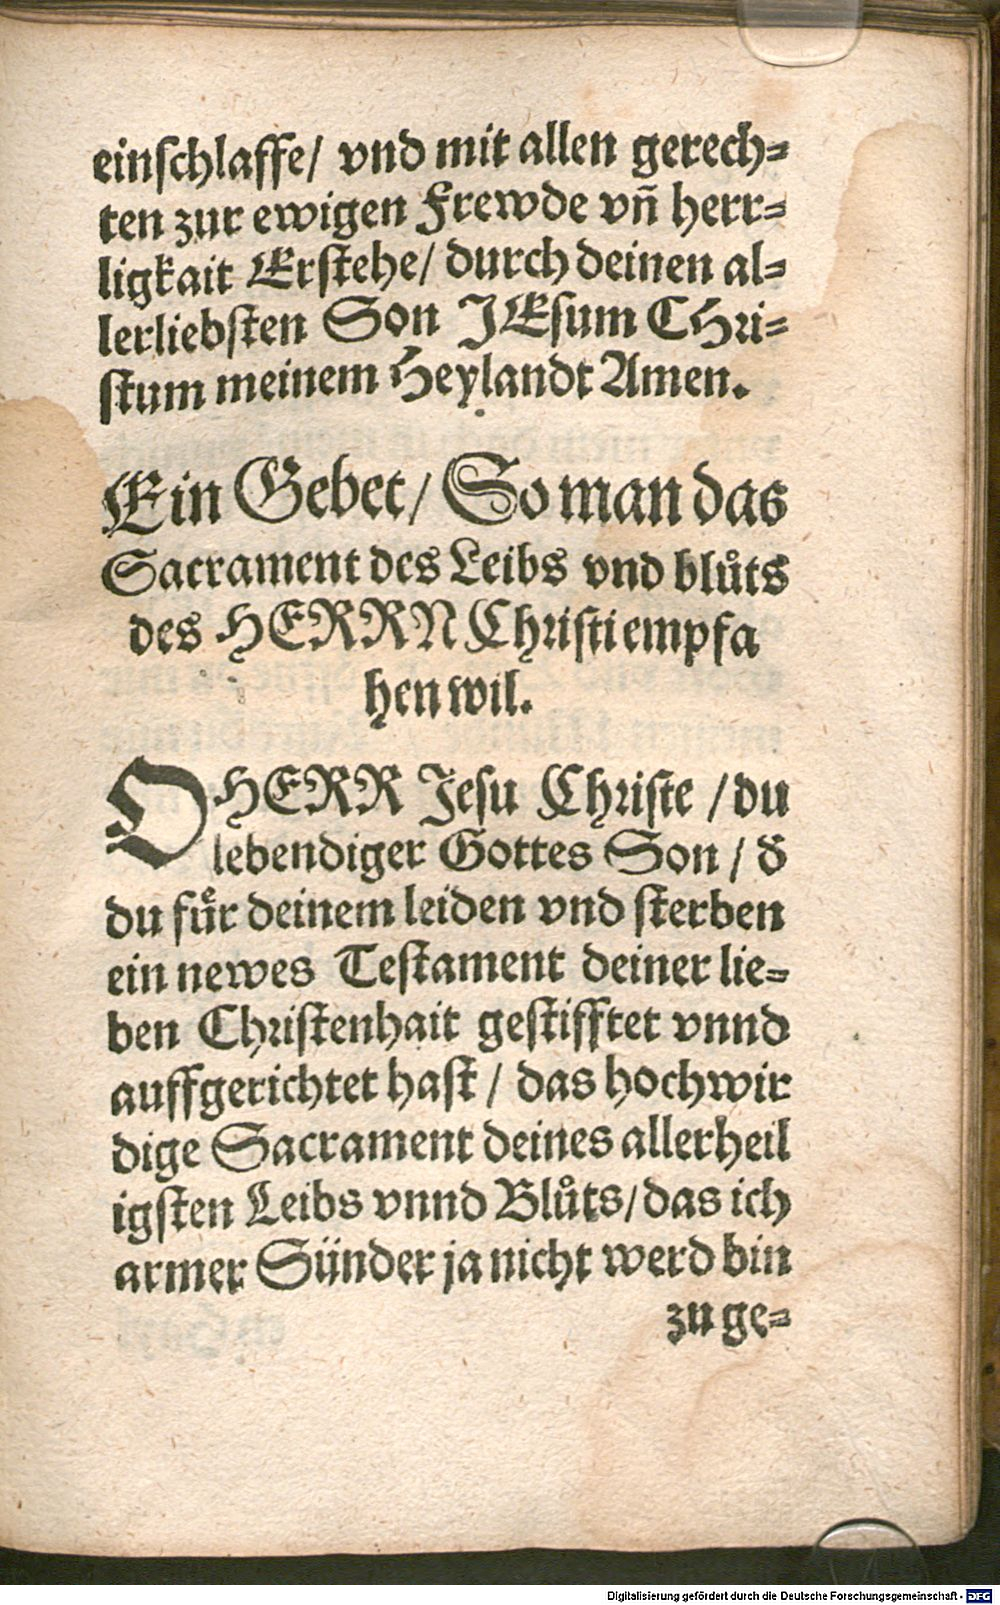 einschlaffe/ vnd mit allen gerech⸗
ten zur ewigen Frewde vn̄ herr⸗
ligkait Erstehe/ durch deinen al⸗
lerliebsten Son JEsum Chri⸗
stum meinem Heylandt Amen.
Ein Gebet/ So man das
Sacrament des Leibs vnd blůts
des HERRN Christi empfa
hen wil.
O HERR Jesu Christe /du
lebendiger Gottes Son / d̄
du fuͤr deinem leiden vnd sterben
ein newes Testament deiner lie⸗
ben Christenhait gestifftet vnnd
auffgerichtet hast / das hochwir
dige Sacrament deines allerheil
igsten Leibs vnnd Blůts/das ich
armer Sünder ja nicht werd bin
zu ge⸗
Digitalisierung gefördert durch die Deutsche Forschungsgemeinschaft - DFG